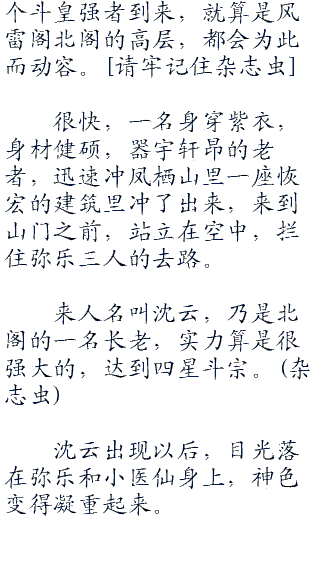 个斗皇强者到来，就算是风
雷阁北阁的高层，都会为此
而动容。[请牢记住杂志虫]
很快，一名身穿紫衣，
身材健硕，器宇轩昂的老
者，迅速冲凤栖山里一座恢
宏的建筑里冲了出来，来到
山门之前，站立在空中，拦
住弥乐三人的去路。
来人名叫沈云，乃是北
阁的一名长老，实力算是很
强大的，达到四星斗宗。(杂
志虫)
沈云出现以后，目光落
在弥乐和小医仙身上，神色
变得凝重起来。